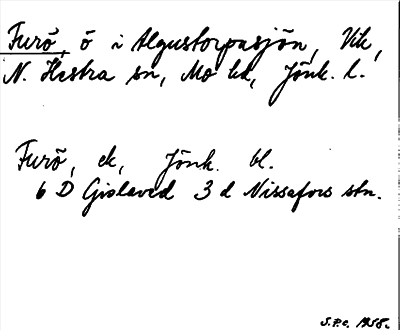 Furö, ö i Algustorpasjön, Vik,
N. Hestra sn, Mo hd, Jönk. l.
Furö, ek, Jönk. bl.
6 D Gislaved 3 d Nissafors stn.
S.P.C. 1958.